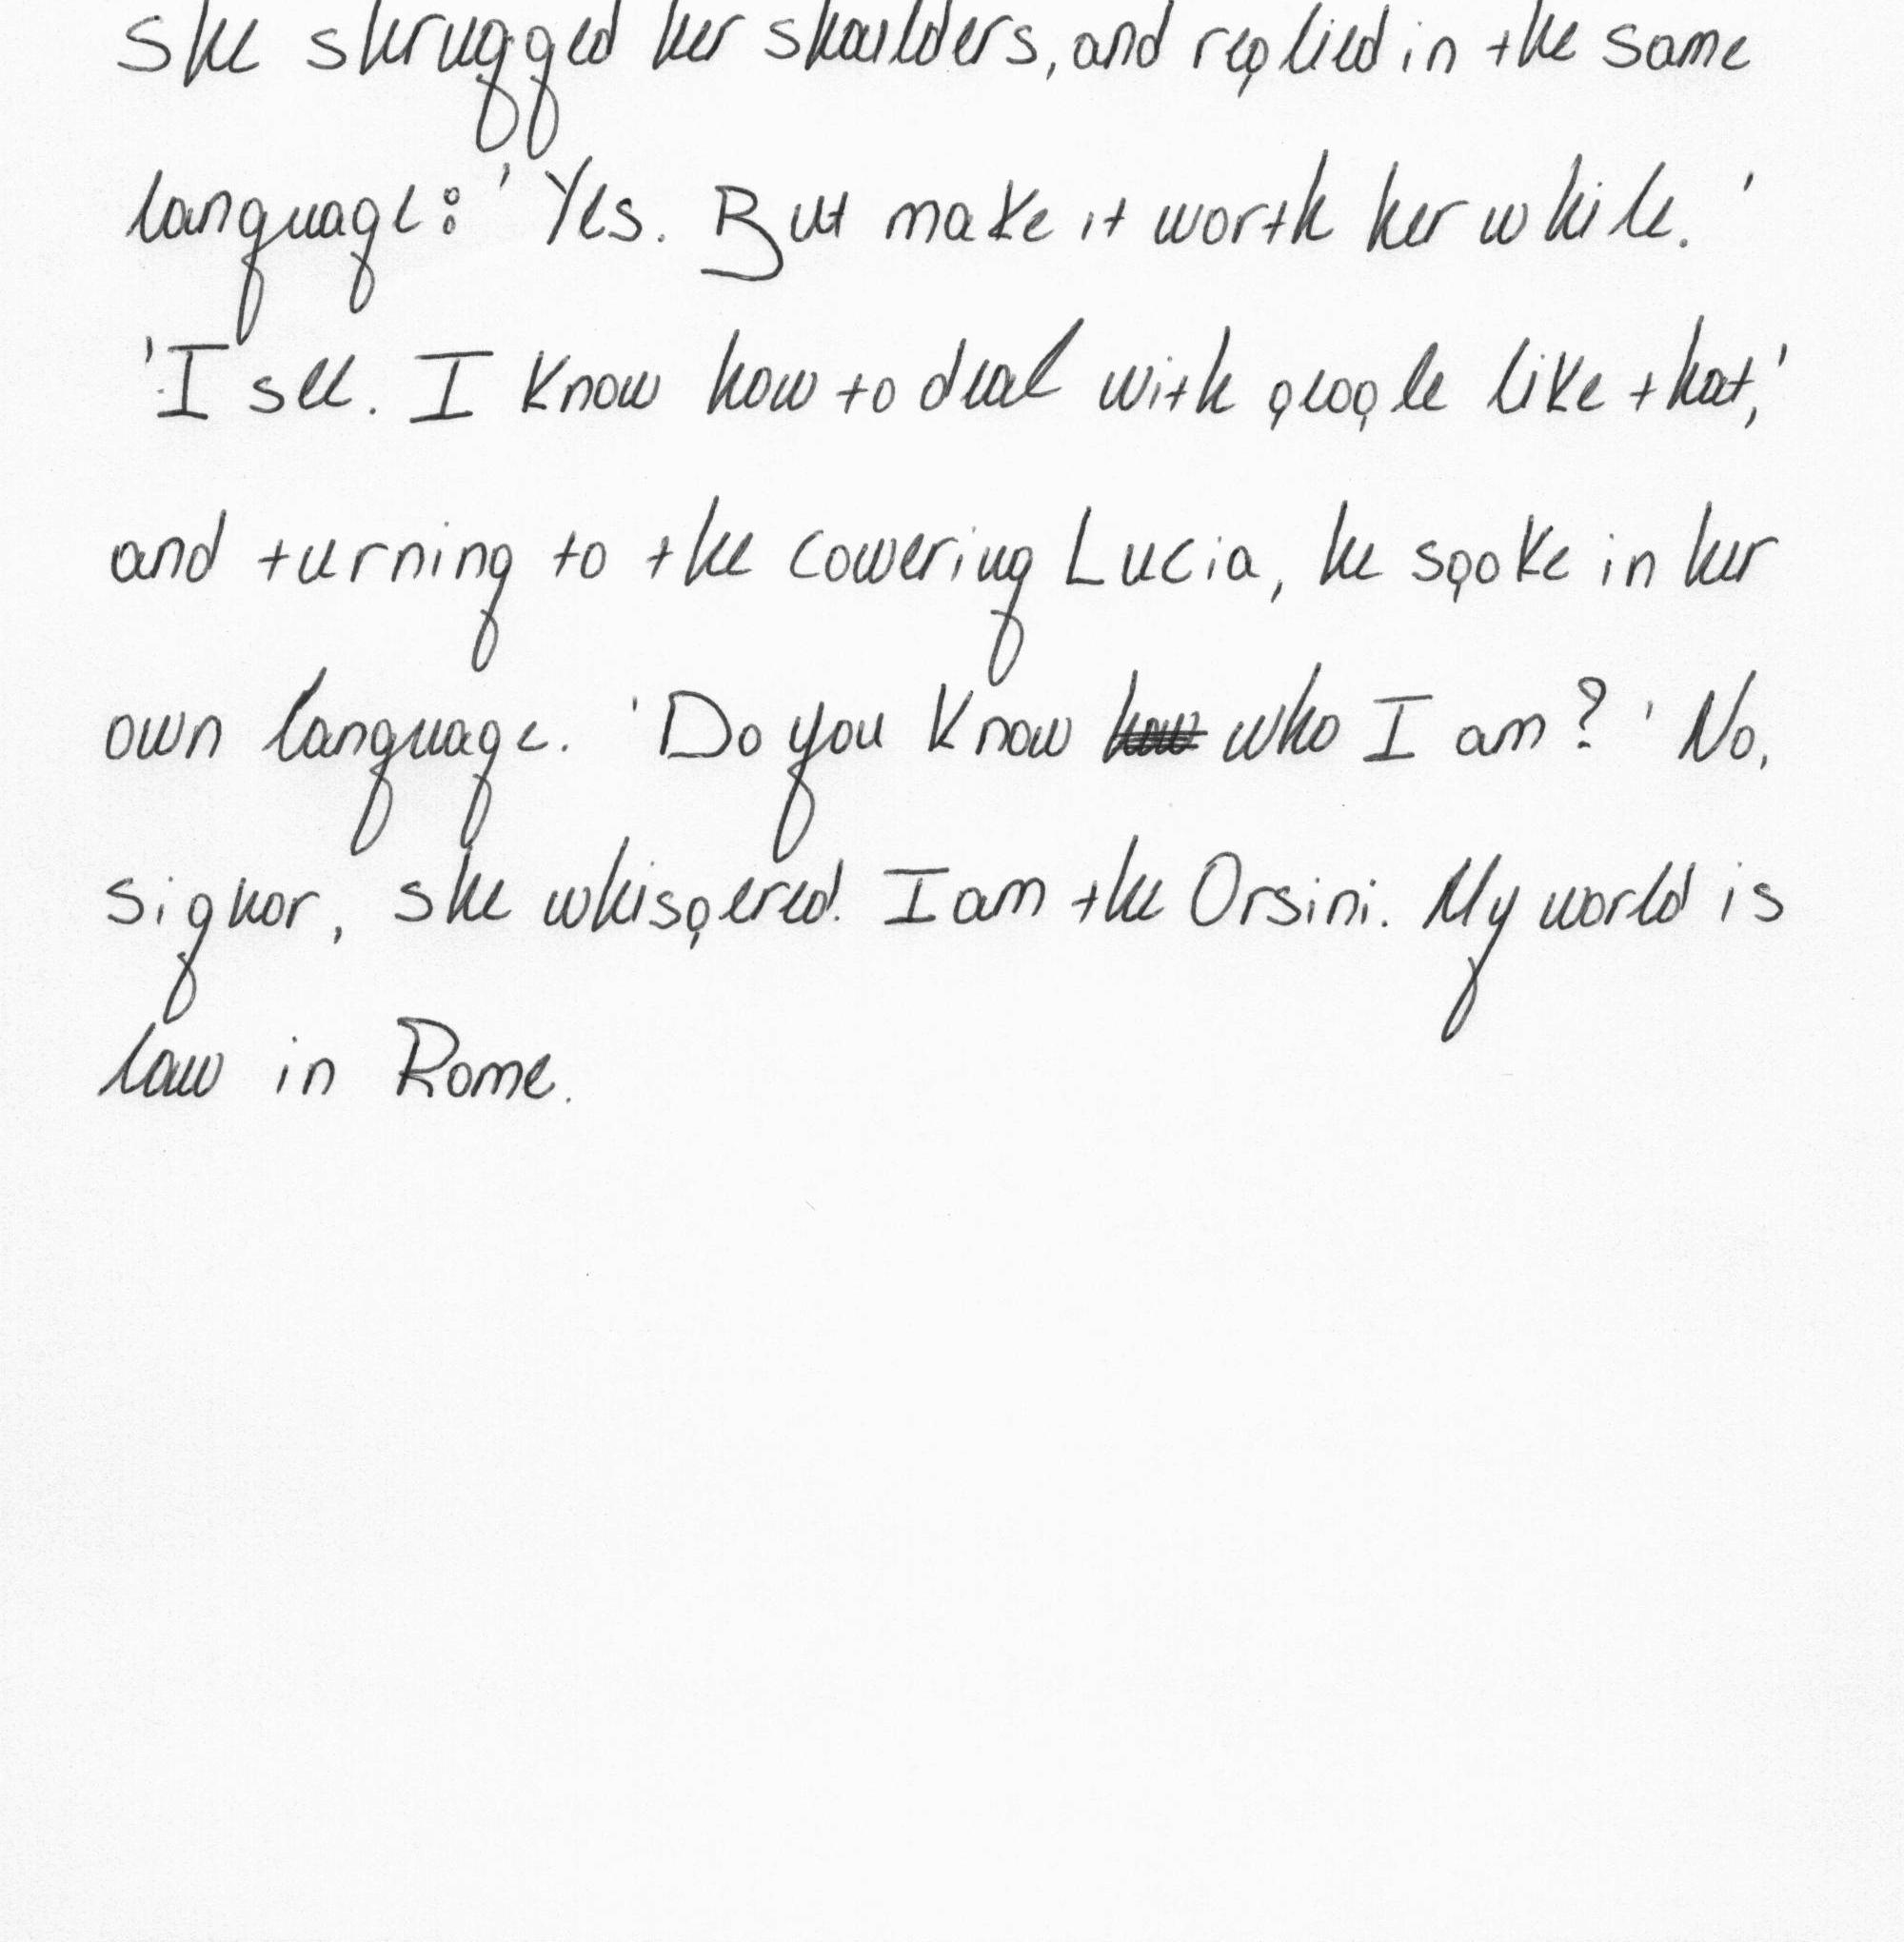 She shrugged her shoulders, and replied in the same
language: 'Yes. But make it worth her while.'
'I see. I know how to deal with people like that,'
and turning to the cowering Lucia, he spoke in her
own language. 'Do you know how who I am?' No,
signor, she whispered. I am the Orsini. My world is
law in Rome.